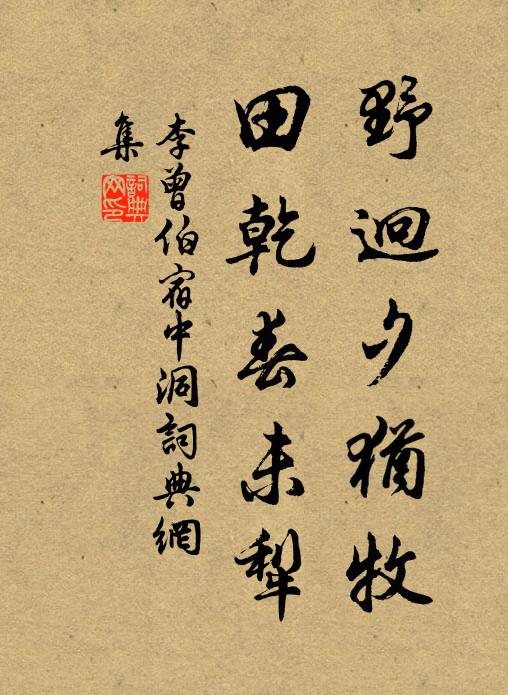 野迥夕猶牧
田乾春未犁
李曾伯宿中洞詞典網
集
詞典
网印